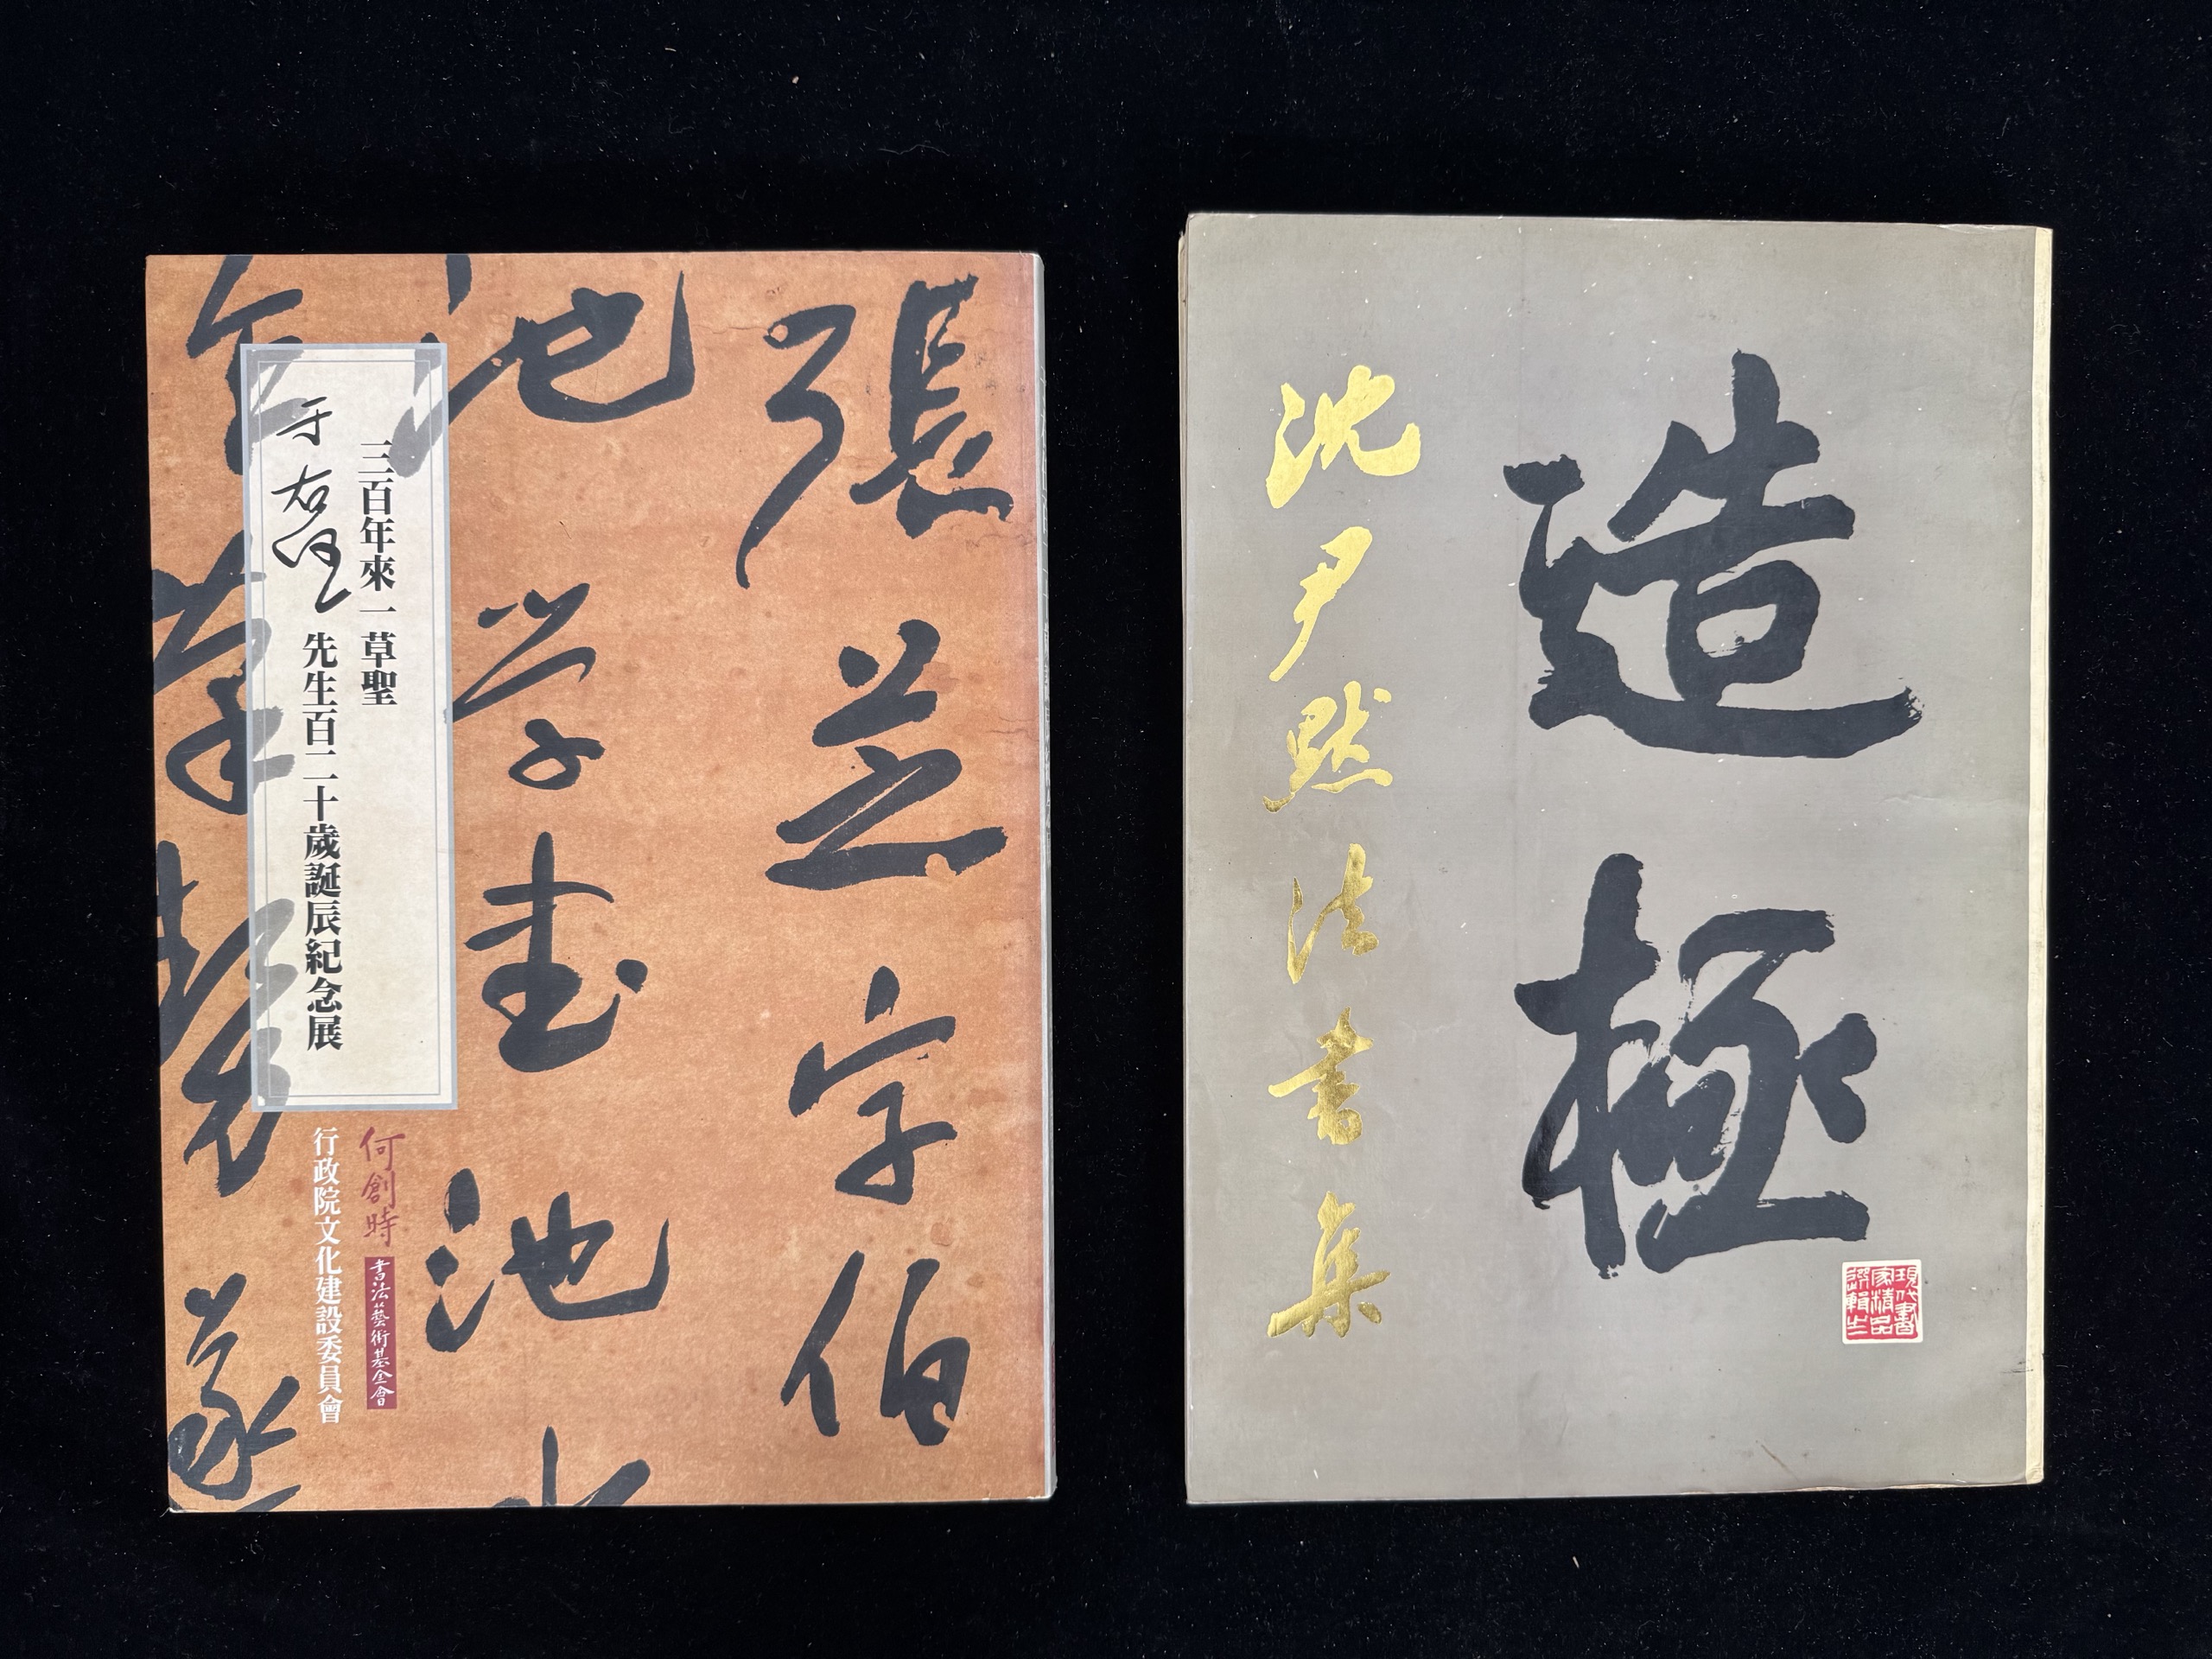 張芝字伯
池学書池
三百年來一草聖
于右任先生百二十歲誕辰紀念展
何創時書法藝術基金會
行政院文化建設委員會
造極
沈尹默法書集
現代書
家精品
選輯之